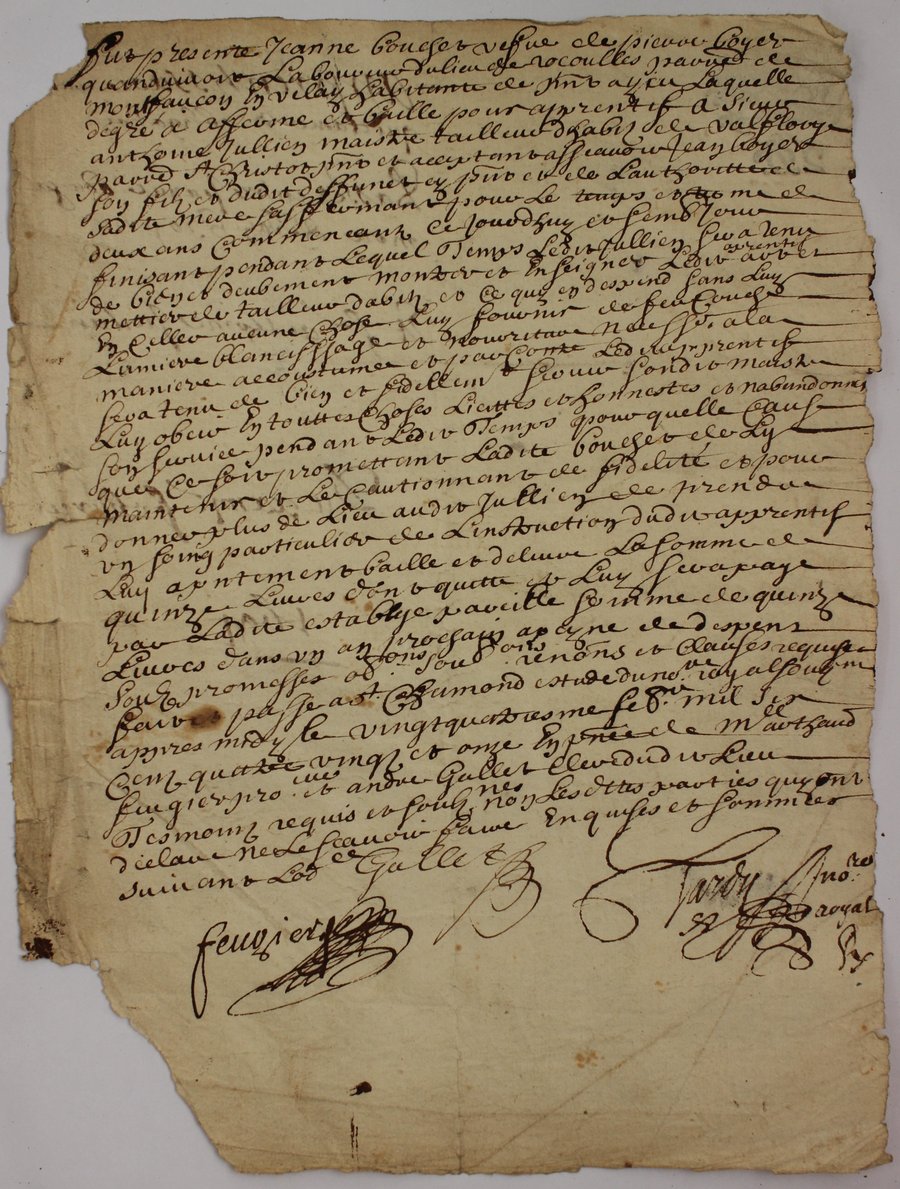 Fut presente Jeanne bouchet vefve de pierre boyer
quand vivoit Laboureur du lieu de rocoulles parroisse de
montfaucon En velay habitante de pnt a yeu Laquelle
degré a affermé et baillé pour apprentif A Sieur
anthoine Jullien maistre tailleur dhabitz de valfloury
parred St Christot pnt et aceptant assavoir Jean boyer
son filz et dudit deffunct et de Lauthoritte de
sadite mere saffermant pour Le temps et terme de
deux ans Commencant Ce Jourdhuy et semb Jour
finisant pendant Lequel Temps Ledit Jullien sera tenu
de bien et deubement monstrer et Enseigner Ledit apprentif
mettier de tailleur dabitz et ce quy en despend sans Luy
En Celler aucune chose Luy fournir de feu Couche
Lumiere blanchissage et nourriture a la
maniere accoustumee et par Contre Ledit apprentif
sera tenu de bien et fidellemt servir sondit maistre
Luy obeir En touttes choses Licittes et honnestes et nabandonner
son service pendant Ledit Temps pour quelle Cause
que Ce soit promettant Ladite bouchet de Ly
maintenir et Le Cautionnant de fidelité et pour
donner plus de Lieu audit Jullien de prendre
un soing particulier de Linstruction dudit apprentif
Luy a pntement baillé et delivré La somme de
quinze Livres dont quitte et Luy sera payé
par Ladite establye pareille somme de quinze
Livres dans un an prochain a peyne de despens
soubz promesses obons soub ons renons et Clauses requises
fait et passé a St Chamond estude du nore royal soubzne
appres midy le vingtquatriesme mil six
Centz quattre vingtz et onze En pnce de Me arthaud
feugier pro et andré Gallet Clerc dudit Lieu
Tesmoins requis et soubznes non Lesdittes parties quy ont
déclaré ne Le scavoir faire Enquises et sommées
suivant Lodce Gallet
Tardy nore
royal
feugier